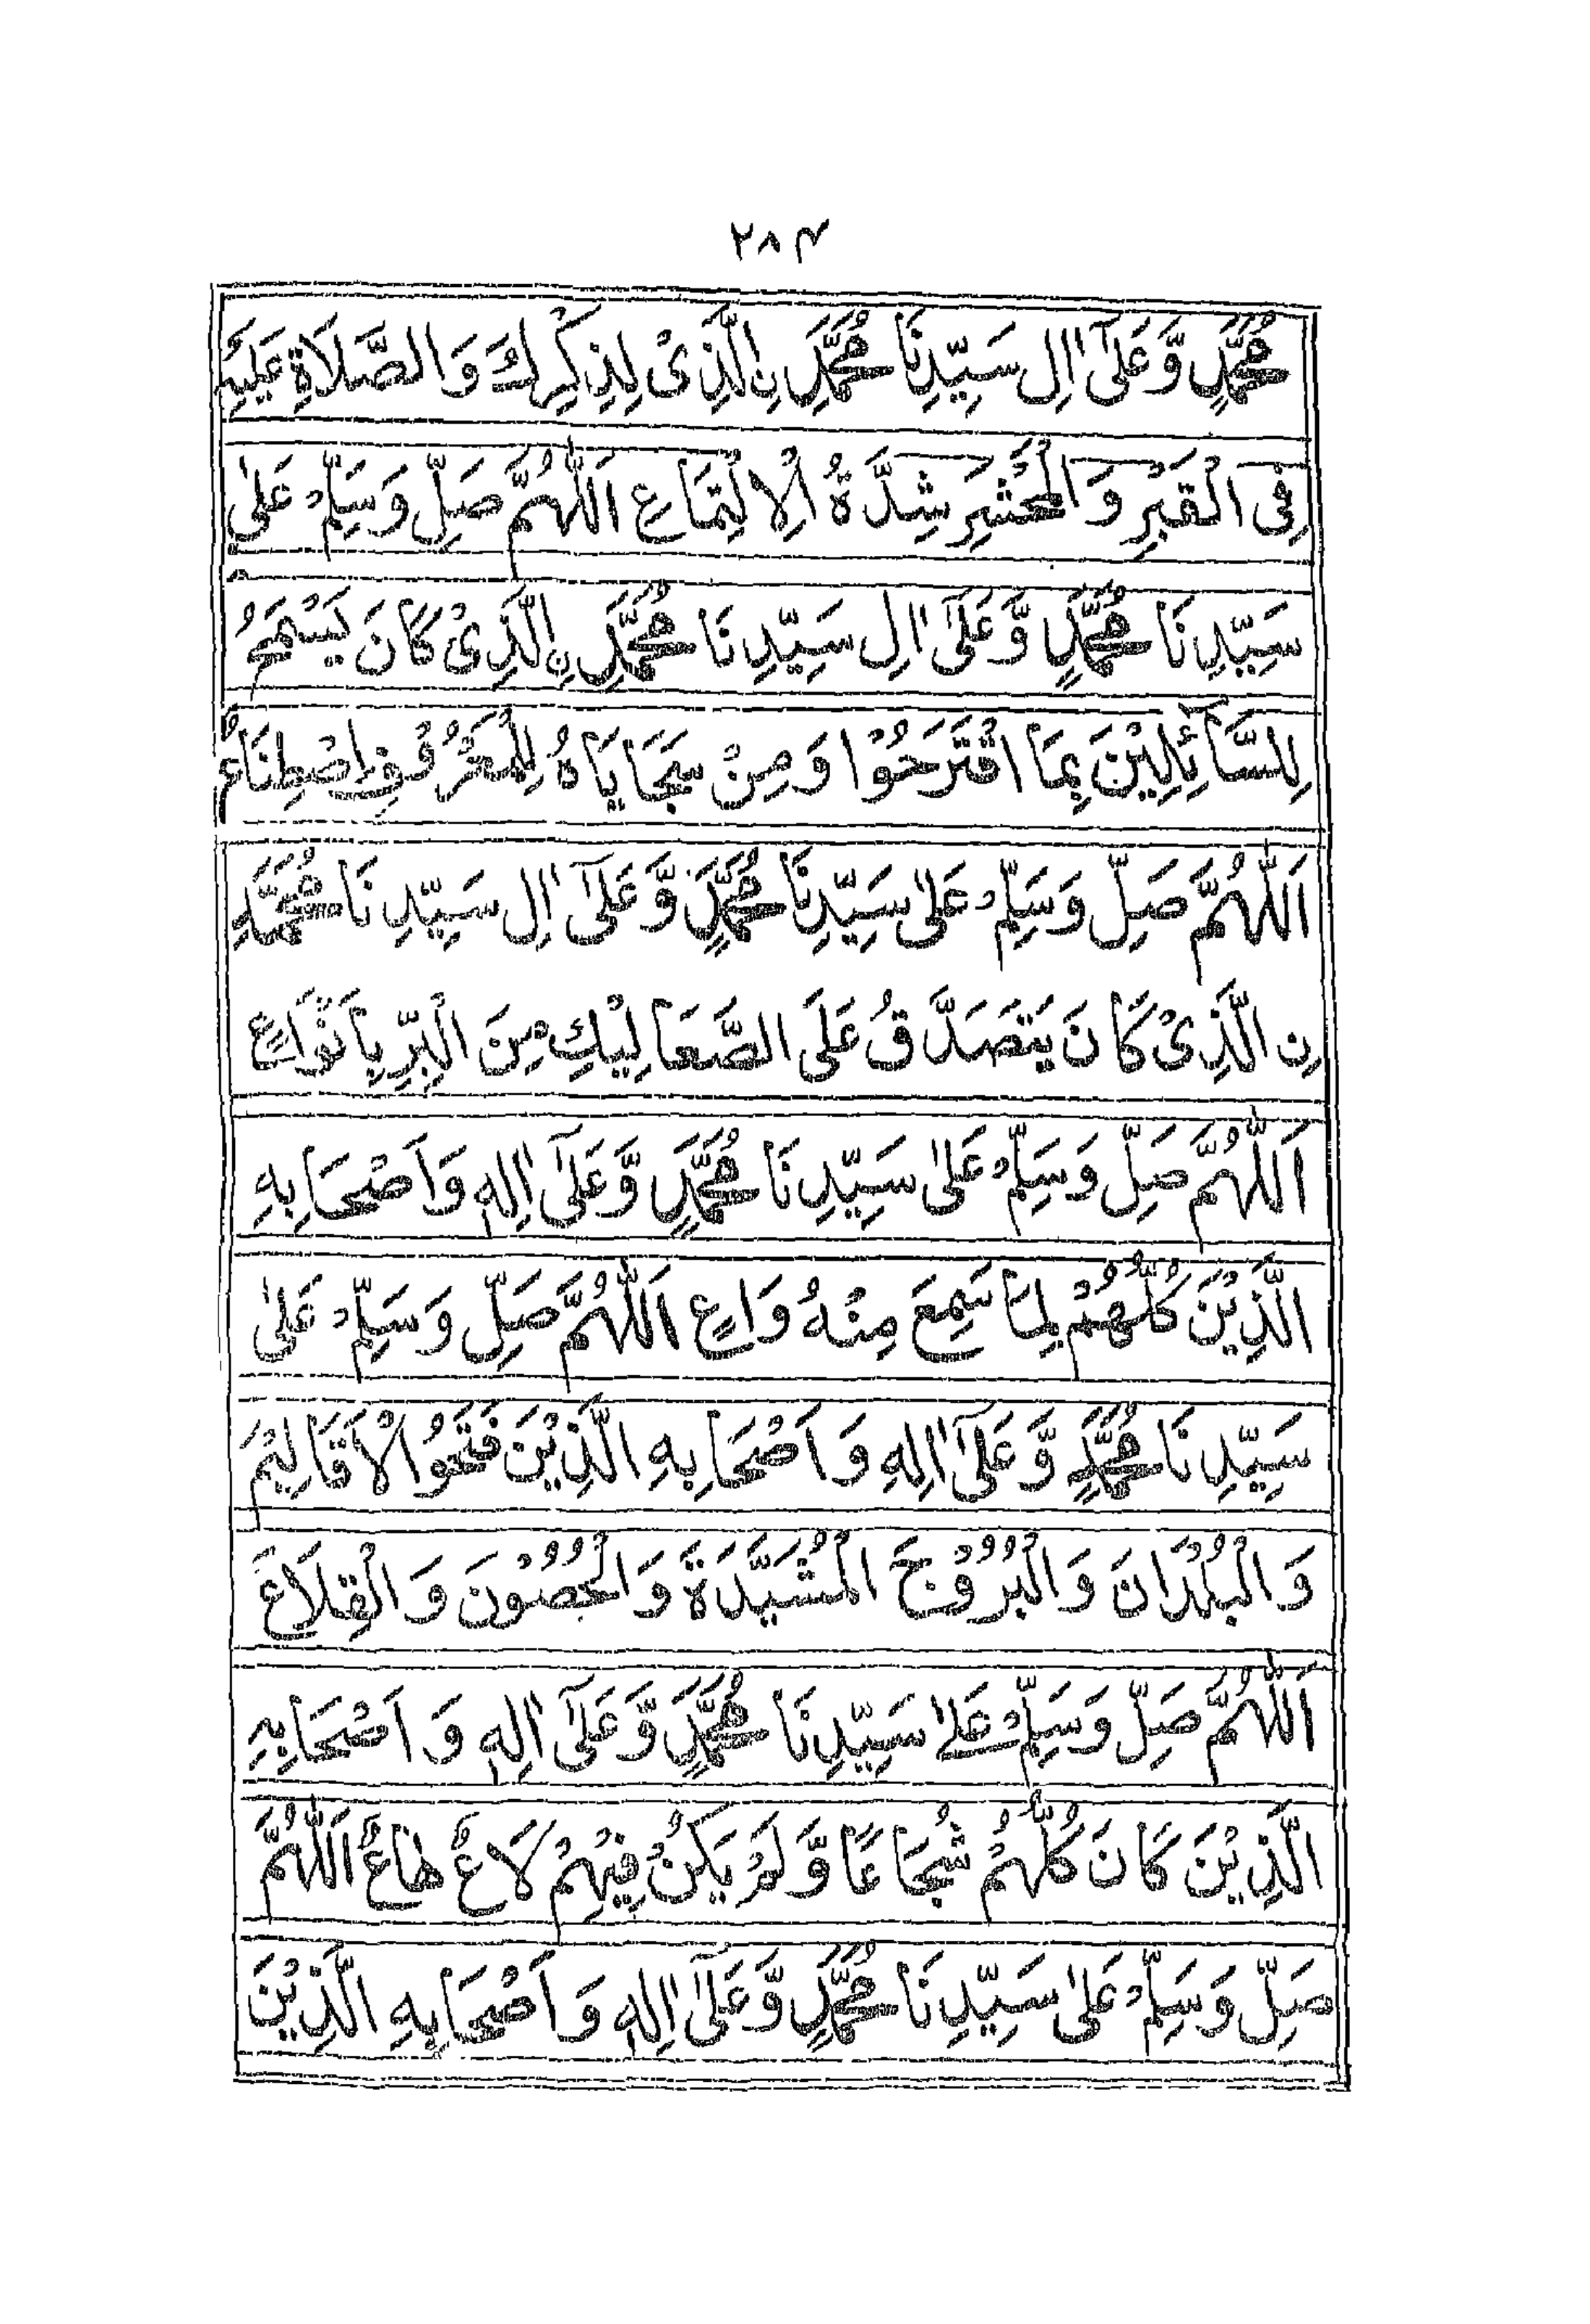 ۲۸۴
مُحَمَّدٍ وَّعَلٰٓى اٰلِ سَيِّدِنَا مُحَمَّدِ نِ الَّذِىْ لِذِكْرِكَ وَالصَّلَاةِ عَلَيْهِ
فِى الْقَبْرِ وَالْمَحْشَرِ شِدَّةُ الْاِلْتِمَاعِ اَللّٰهُمَّ صَلِّ وَسَلِّمْ عَلٰى
سَيِّدِنَا مُحَمَّدٍ وَّعَلٰٓى اٰلِ سَيِّدِنَا مُحَمَّدِ نِ الَّذِىْ كَانَ يَسْمَحُ
لِلسَّآئِلِيْنَ بِمَا اقْتَرَحُوْا وَمِنْ سَجَايَاهُ لِلْمَعْرُوْفِ اصْطِنَاعٌ
اَللّٰهُمَّ صَلِّ وَسَلِّمْ عَلٰى سَيِّدِنَا مُحَمَّدٍ وَّعَلٰٓى اٰلِ سَيِّدِنَا مُحَمَّدِ
نِ الَّذِىْ كَانَ يَتَصَدَّقُ عَلَى الصَّعَالِيْكِ مِنَ الْبِرِّ بِاَنْوَاعٍ
اَللّٰهُمَّ صَلِّ وَسَلِّمْ عَلٰى سَيِّدِنَا مُحَمَّدٍ وَّعَلٰٓى اٰلِهٖ وَاَصْحَابِهِ
الَّذِيْنَ كُلُّهُمْ لِمَا سَمِعَ مِنْهُ وَاعٍ اَللّٰهُمَّ صَلِّ وَسَلِّمْ عَلٰى
سَيِّدِنَا مُحَمَّدٍ وَّعَلٰٓى اٰلِهٖ وَاَصْحَابِهِ الَّذِيْنَ فَتَحُوا الْاَقَالِيْمَ
وَالْبُلْدَانَ وَالْبُرُوْجَ الْمُشَيَّدَةَ وَالْحُصُوْنَ وَالْقِلَاعَ
اَللّٰهُمَّ صَلِّ وَسَلِّمْ عَلٰى سَيِّدِنَا مُحَمَّدٍ وَّعَلٰٓى اٰلِهٖ وَاَصْحَابِهِ
الَّذِيْنَ كَانَ كُلُّهُمْ شُجَاعًا وَّلَمْ يَكُنْ فِيْهِمْ لَاعٌ هَاعٌ اَللّٰهُمَّ
صَلِّ وَسَلِّمْ عَلٰى سَيِّدِنَا مُحَمَّدٍ وَّعَلٰٓى اٰلِهٖ وَاَصْحَابِهِ الَّذِيْنَ